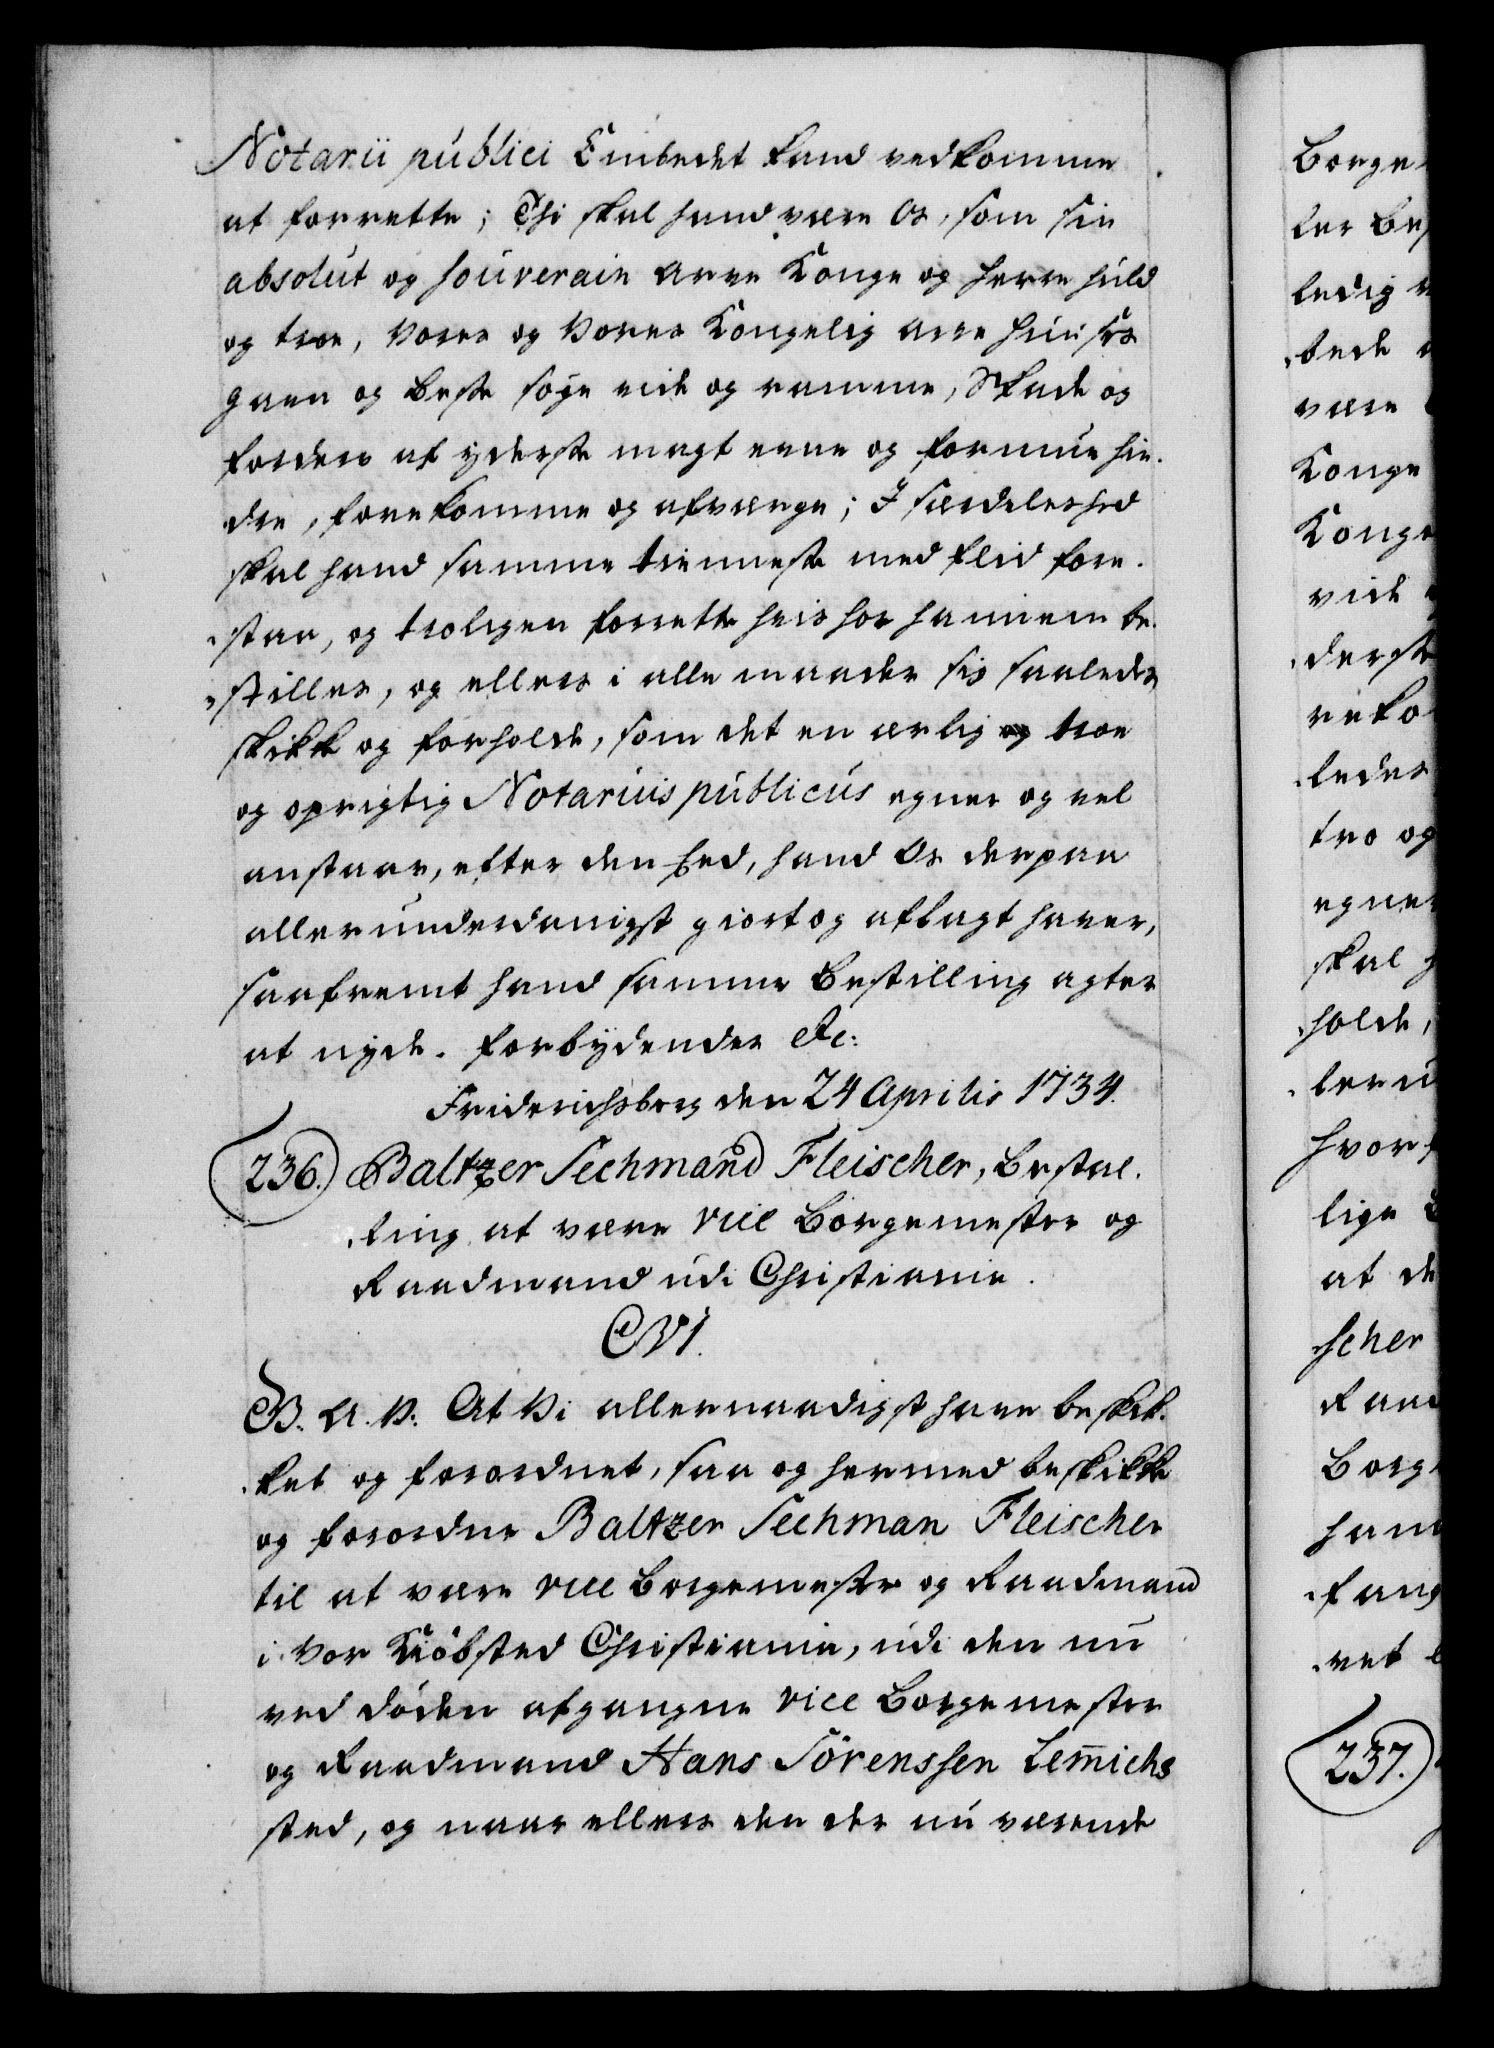 Notarii publici Embedet kand vedkomme
at forrette; Thi skal hand være Os, som sin
absolut og souverain Arve Konge og Herre huld
og troe, Vores og Vores Kongelig Arve Huuses
gavn og beste søge vide og ramme, Skade og
forderv af yderste magt evne og formue hin-
dre, forekomme og afværge; I særdeleshed
skal hand samme tienneste med flid fore-
-staa, og troligen forrette hvis hos hannem be-
-stilles, og ellers i alle maader sig saaledes
skikke og forholde, som det en ærlig troe
og oprigtig Notarius publicus egner og vel
anstaar, efter den Eed, hand Os derpaa
allerunderdanigst giort og aflagt haver,
saafremt hand samme Bestilling agter
at nyde. Forbydendes Etc:
Friderichsberg den 24 Aprilis 1734.
236. Baltzer Sechmand Fleischer, Bestal-
-ling at være Vice Borgemester og
Raadmand udi Christiania.
C VI.
G. A. V. At Vi allernaadigst have beskik-
-ket og forordnet, saa og hermed beskikke
og forordne Baltzer Sechman Fleischer
til at være vice Borgemester og Raadmand
i Vor Kiøbsted Christiania, udi den nu
ved døden afgangne vice Borgemester
og Raadmand Hans Sörenssen Lem̄ichs
sted, og naar ellers den der nu værende
Borge-
tede
være
Konge
Konge
vide
-derste
-ledes
tro og
egner
skal h
-holde,
-leru
hvor
lige
at de
-scher
Raad
Borg
ham
-fang
-vet
237.